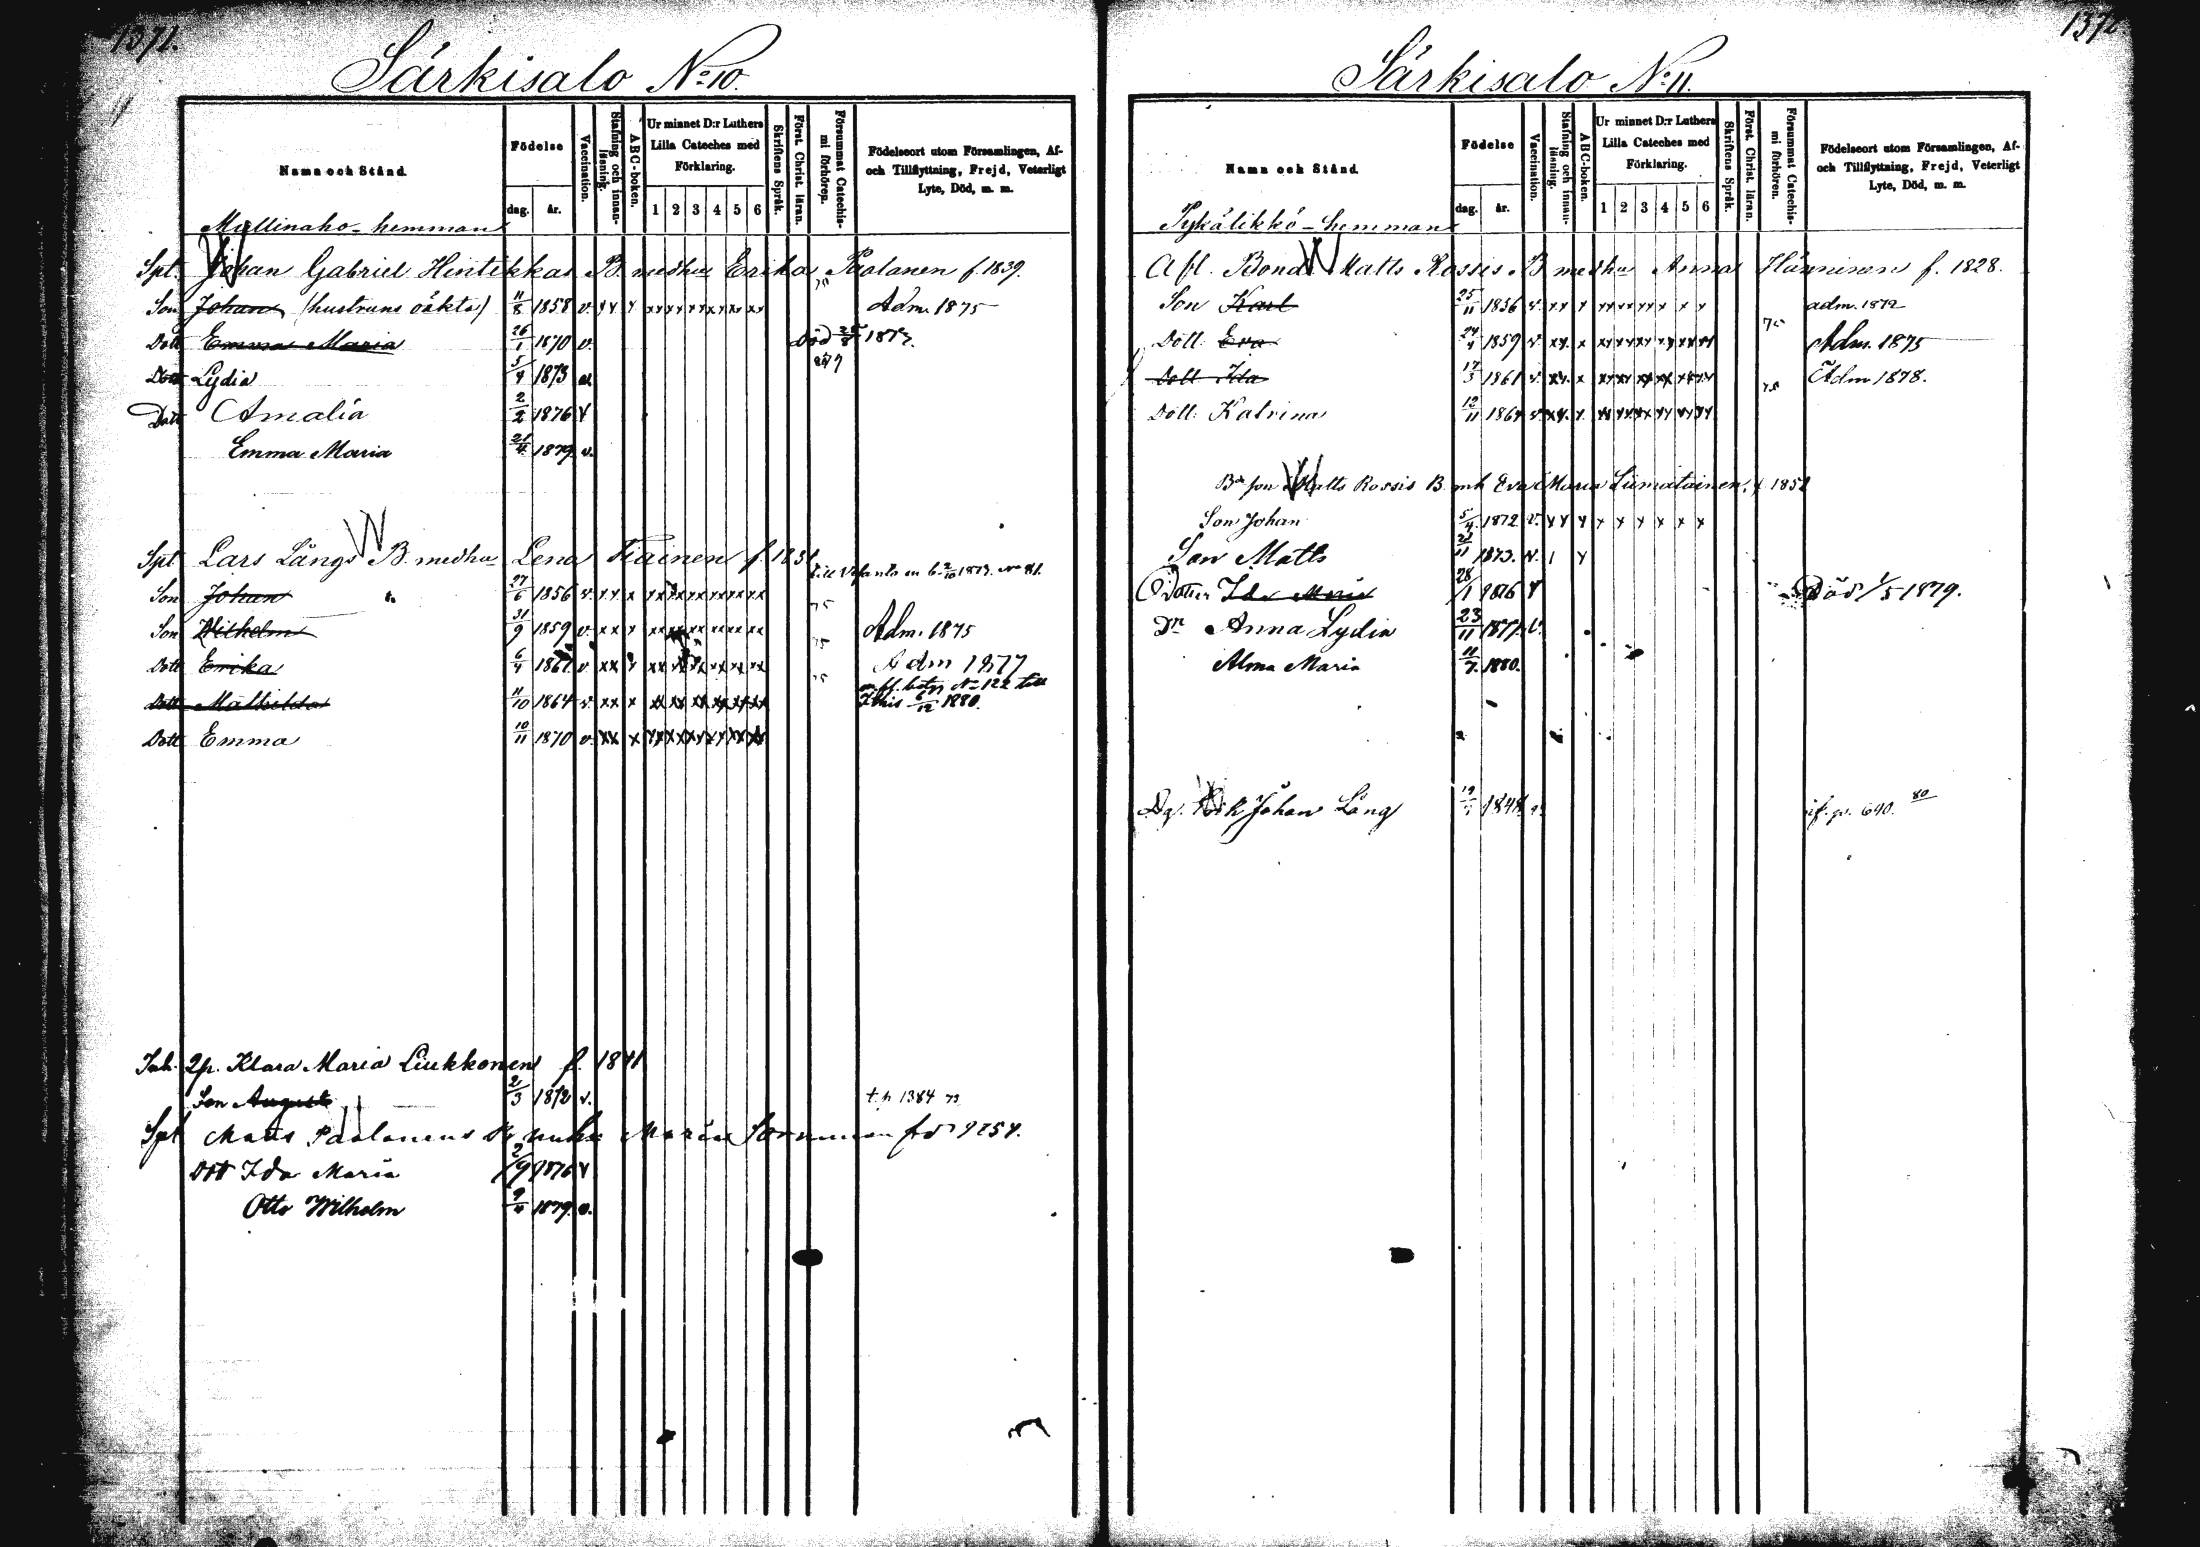 1371.
Särkisalo No 10.
Namn och Stånd.
Födelse
dag. år.
Vaccination.
Stafning och innanläsning.
ABC-boken.
Ur minnet D:r Luthers Lilla Cateches med Förklaring.
1 2 3 4 5 6
Skriftens Språk.
Först. Christ. läran.
Försummat Catechismi förhören.
Födelseort utom Församlingen, Af- och Tillflyttning, Frejd, Veterligt Lyte, Död, m. m.
Myllinaho-hemman
Spt. Johan Gabriel Hintikkas B. medhu Erika Paalanen f. 1839.
Son Johan (hustruns oäkta) 11/8 1858 v. Adm. 1875
Dott Emma Maria 26/1 1870 v. Död
Dott Lydia 5/4 1873
Dott Amalia 2/2 1876 v
Emma Maria 21/4 1879 v.
Spt Lars Långs B. medhu Lena Tiainen f. 1831
Son Johan 27/6 1856 v.
Son Wilhelm 31/9 1859 v. Adm. 1875
Dott Erika 6/4 1861 v Adm 1877
Dott Mathilda 11/10 1864 v. No 122 till 6/12 1880.
Dott Emma 10/11 1870 v.
Inh. Qp. Klara Maria Liukkonen f. 1841
Son August 2/3 1872 v. t. p. 1384 73
Spt Matts Paalanens Maria
Dott Ida Maria 2/9 1876 v
Otto Wilhelm 9/4 1879. v.
1372
Särkisalo No 11.
Namn och Stånd.
Födelse
dag. år.
Vaccination.
Stafning och innanläsning.
ABC-boken.
Ur minnet D:r Luthers Lilla Cateches med Förklaring.
1 2 3 4 5 6
Skriftens Språk.
Först. Christ. läran.
Försummat Catechismi förhören.
Födelseort utom Församlingen, Af- och Tillflyttning, Frejd, Veterligt Lyte, Död, m. m.
Pykälikkö-hemman
Afl. Bond. Matts Rossis B medhu Anna Hänninen f. 1828.
Son Karl 25/11 1856 v. adm. 1872
Dott. Eva 24/4 1859 v. Adm. 1875
Dott Ida 17/3 1861 v. Adm 1878.
Dott. Katrina 12/11 1864 v.
Bd son Matts Rossis B. mh Eva Maria Liimatainen, f. 1852
Son Johan 5/4 1872 v.
Son Matts 21/11 1873. v.
Dotter Ida Maria 28/1 1876 v Död 1/5 1879.
Dr Anna Lydia 23/11 1877 v.
Alma Maria 11/7. 1880.
Johan Lång 640. 80